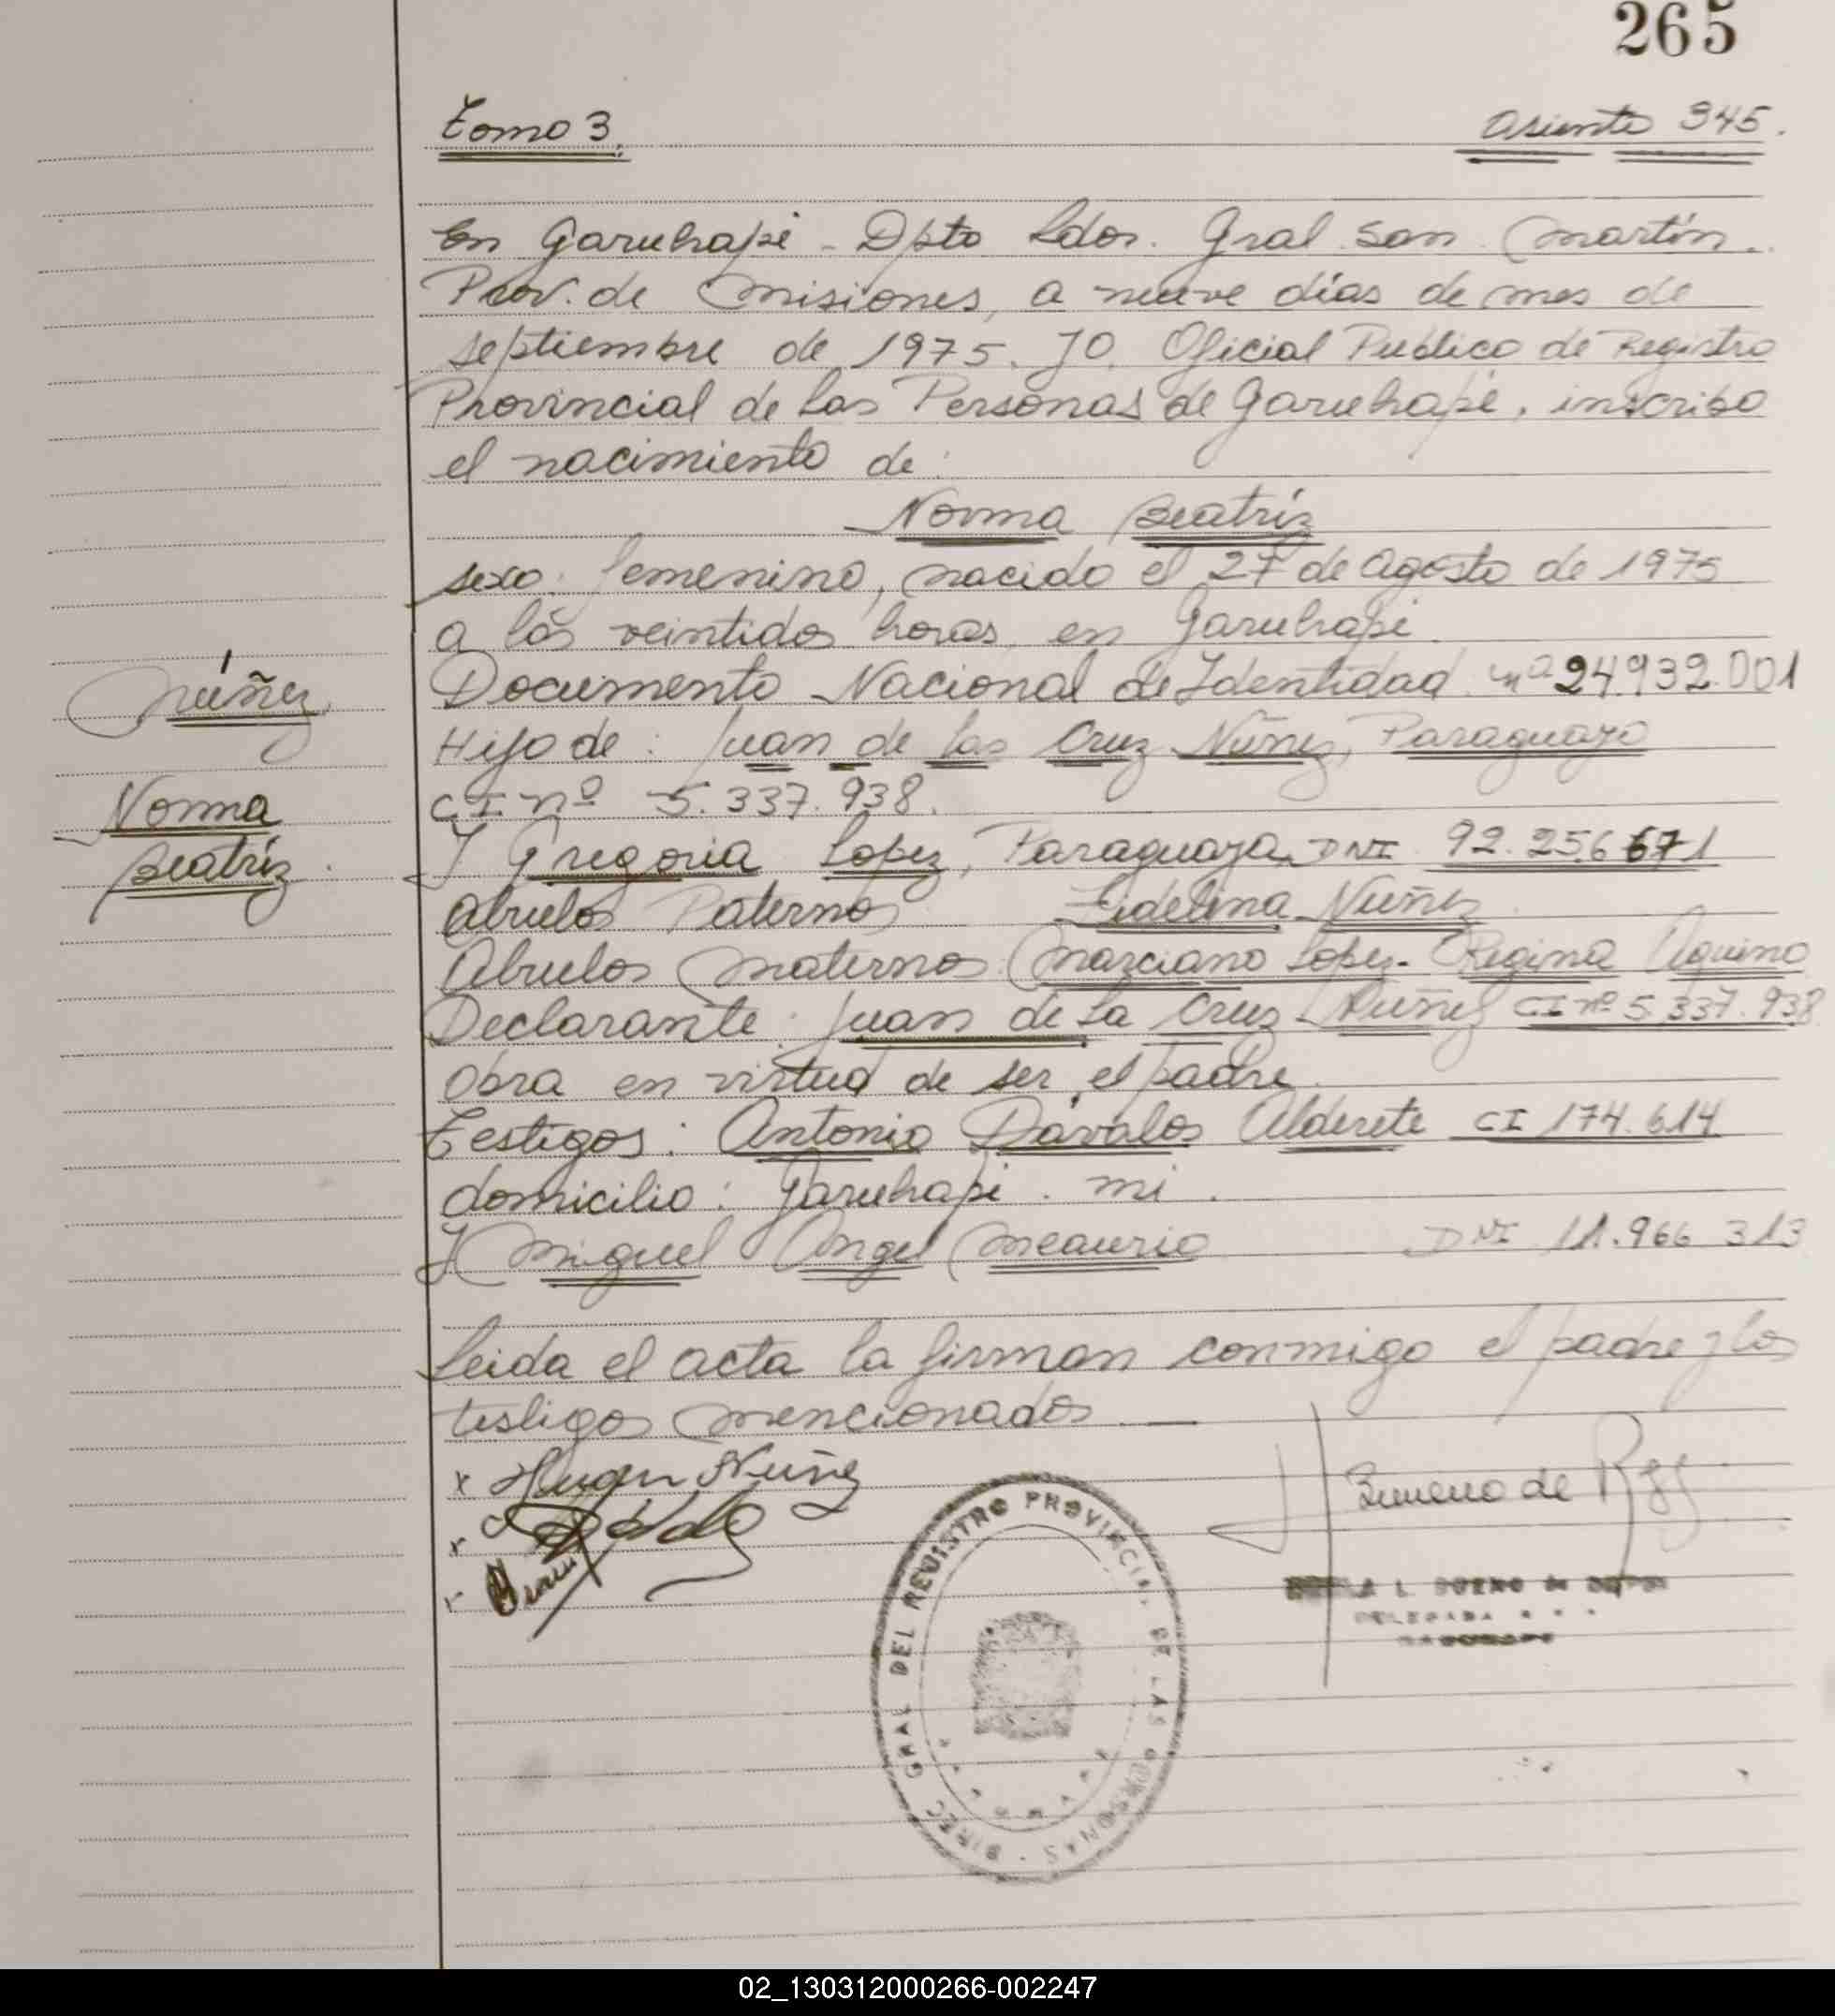 265
Tomo 3.
Asiento 345.
En Garuhapé - Dpto Ldor. Gral San Martín.
Prov. de Misiones, a nueve días de mes de
septiembre de 1975. Yo, Oficial Publico de Registro
Provincial de las Personas de Garuhapé, inscribo
el nacimiento de:
Norma Beatríz
sexo: femenino, nacido el 27 de Agosto de 1975
a las veintidos horas, en Garuhapé.
Núñez
Documento Nacional de Identidad nº 24.932.001
Hijo de: Juan de las Cruz Núñez, Paraguayo
Norma
CI nº 5.337.938.
Beatríz.
Y Gregoria Lopez, Paraguaya DNI 92.256671
Abuelos Paternos Fidelina Nuñez
Abuelos Maternos: Marciano Lopez - Regina Aquino
Declarante: Juan de la Cruz Nuñez CI nº 5.337.938
Obra en virtud de ser el padre.
Testigos: Antonio Dávalos Alderete CI 174.614
domicilio: Garuhapé. Mi.
Y Miguel Angel Meaurio DNI 11.966.313
Leida el acta la firman conmigo el padre y los
testigos mencionados
x Nuñez
DIREC GRAL DEL REGISTRO PROVINCIAL DE LAS PERSONAS
DELEGADA
02_130312000266-002247